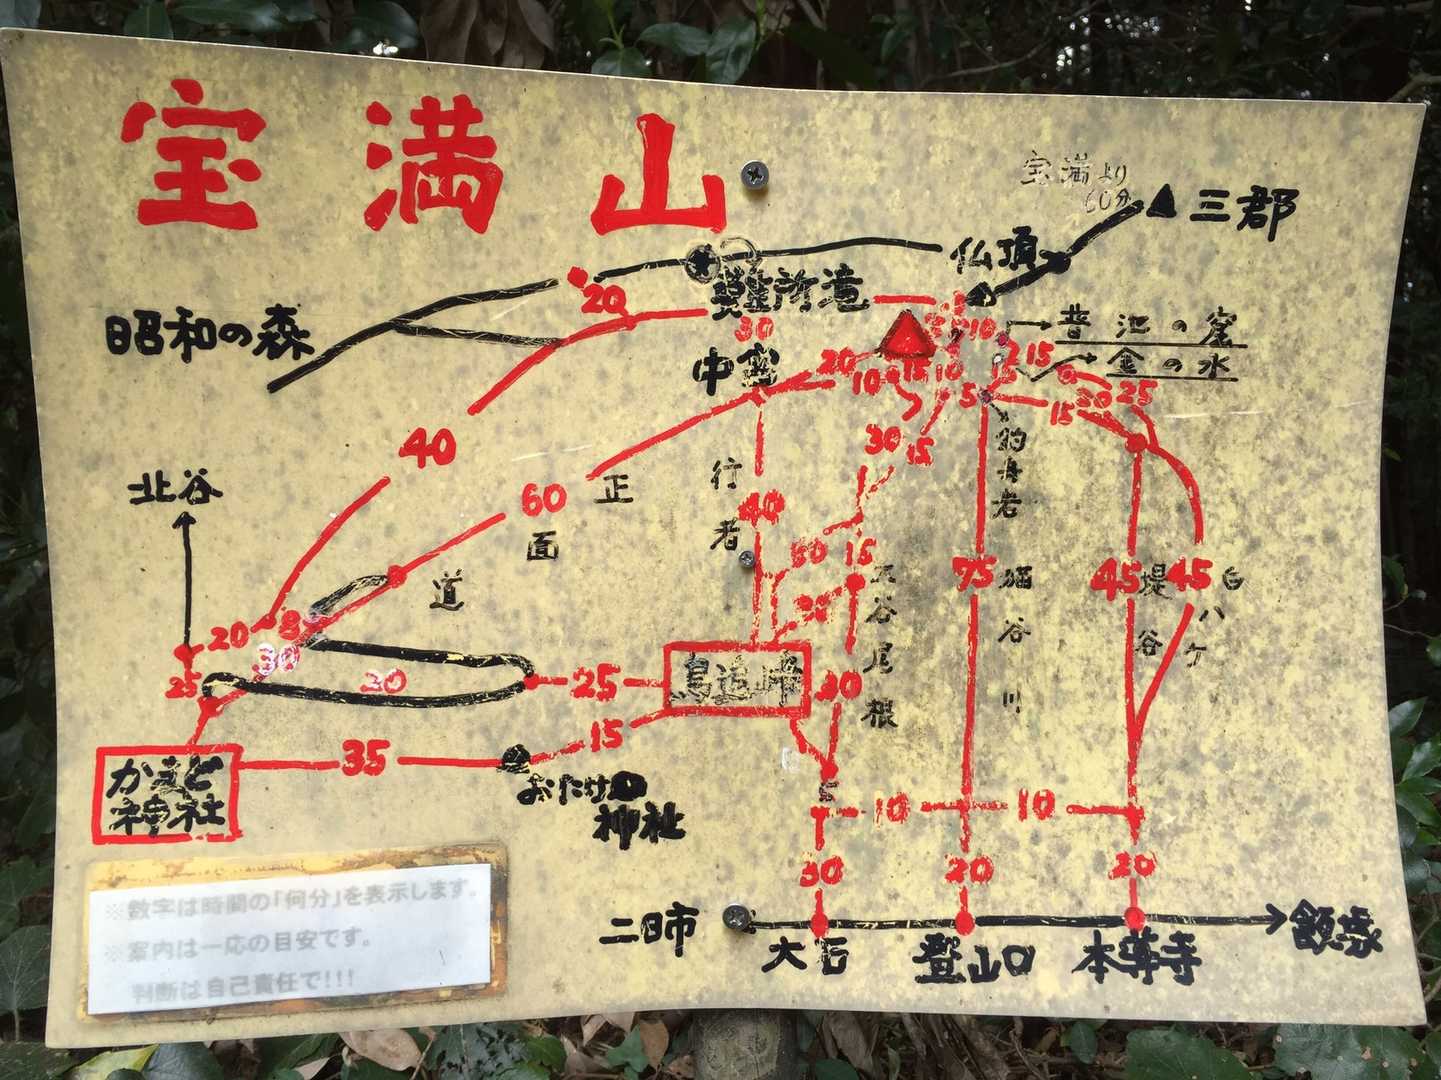 宝満山
宝満より
60分
三郡
仏頂
難所滝
20
30
昭和の森
中宮
20
10
10
15
10
15
25
金の水
5
15
30
40
30
15
釣舟岩
北谷
60
正面道
行者
40
60
15
75
45
45
堤谷
尾根
谷川
20
8
30
25
20
25
鳥追峠
30
35
15
かまど
神社
おたけの
神社
10
10
30
20
20
※数字は時間の「何分」を表示します。
※案内は一応の目安です。
判断は自己責任で!!!
二日市
大石
登山口
本導寺
飯塚